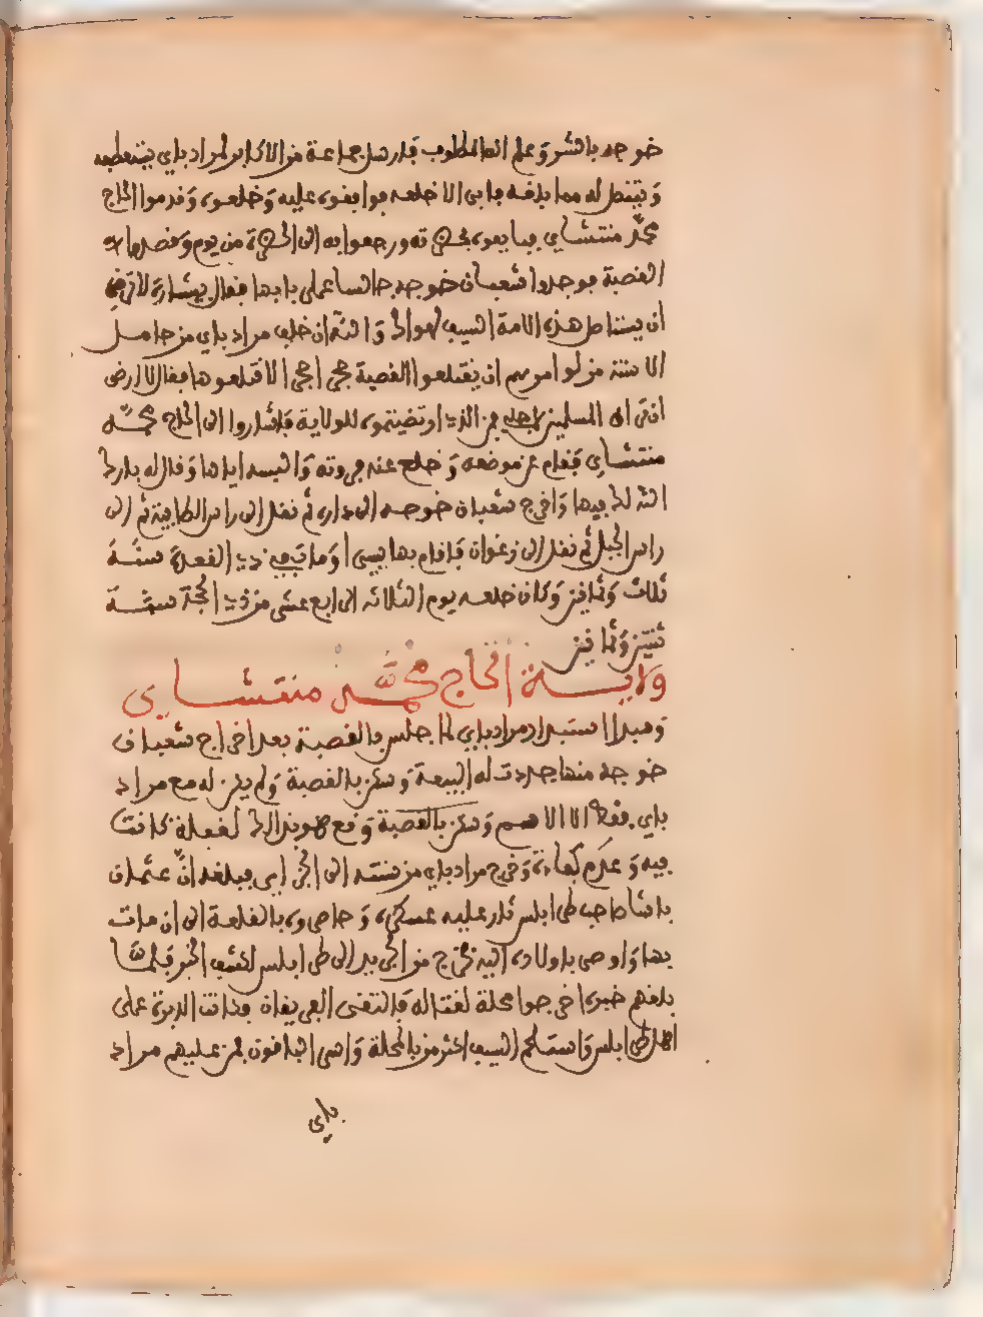 خوجه بالشر وعلم انه المطلوب فارسل جماعة من الاكابر لمراد باي يستعطفه
ويتنصل له مما بلغه فابى الا خلعه فوافقوه عليه وخلعوه وقدموا الحاج
محمد منتشالي فبايعوه ورجعوا به الى من يوم وقصدوا
القصبة فوجدوا شعبان خوجه جالسا على بابها فقال
ان يستاصل هذه الامة السيف وان خلف مراد باي من حامل
الاسنة من لو امرهم ان يقتلعوا القصبة حجرا حجرا لاقتلعوها فقال لا ارضى
المسلمين لاجلي فمن الذي ارتضيتموه للولاية فاشاروا الى الحاج محمد
منتشالي فقام عن موضعه وخلع عنه فروته والبسه اياها وقال له بارك
الله لك فيها واخرج شعبان خوجه الى داره ثم نقل الى راس الطابية ثم الى
راس الجبل ثم نقل الى زغوان فاقام بها يسيرا ومات في ذي القعدة سنة
ثلاث وثمانين وكان خلعه يوم الثلاثاء الرابع عشر من ذي الحجة سنة
ثنتين وثمانين
ولاية الحاج محمد منتشالي
ومبدا استبداد مراد باي لما جلس بالقصبة بعد اخراج شعبان
خوجه منها جددت له البيعة وسكن بالقصبة ولم يكن له مع مراد
باي فقط الا الاسم وسكن بالقصبة وقنع هو بذلك لغفلة كانت
فيه وعدم كفاءة وخرج مراد باي من سنته الى الجريد فبلغه ان عثمان
باشا صاحب طرابلس ثار عليه عسكره وحاصروه بالقلعة الى ان مات
بها واوصى باولاده اليه فخرج من الجريد الى طرابلس لكشف الخبر فلما
بلغهم خبره اخرجوا محلة لقتاله فالتقى الفريقان فكانت الدبرة على
اهل طرابلس واستلحم السيف اكثر من بالمحلة واسر الباقون فمن عليهم مراد
باي